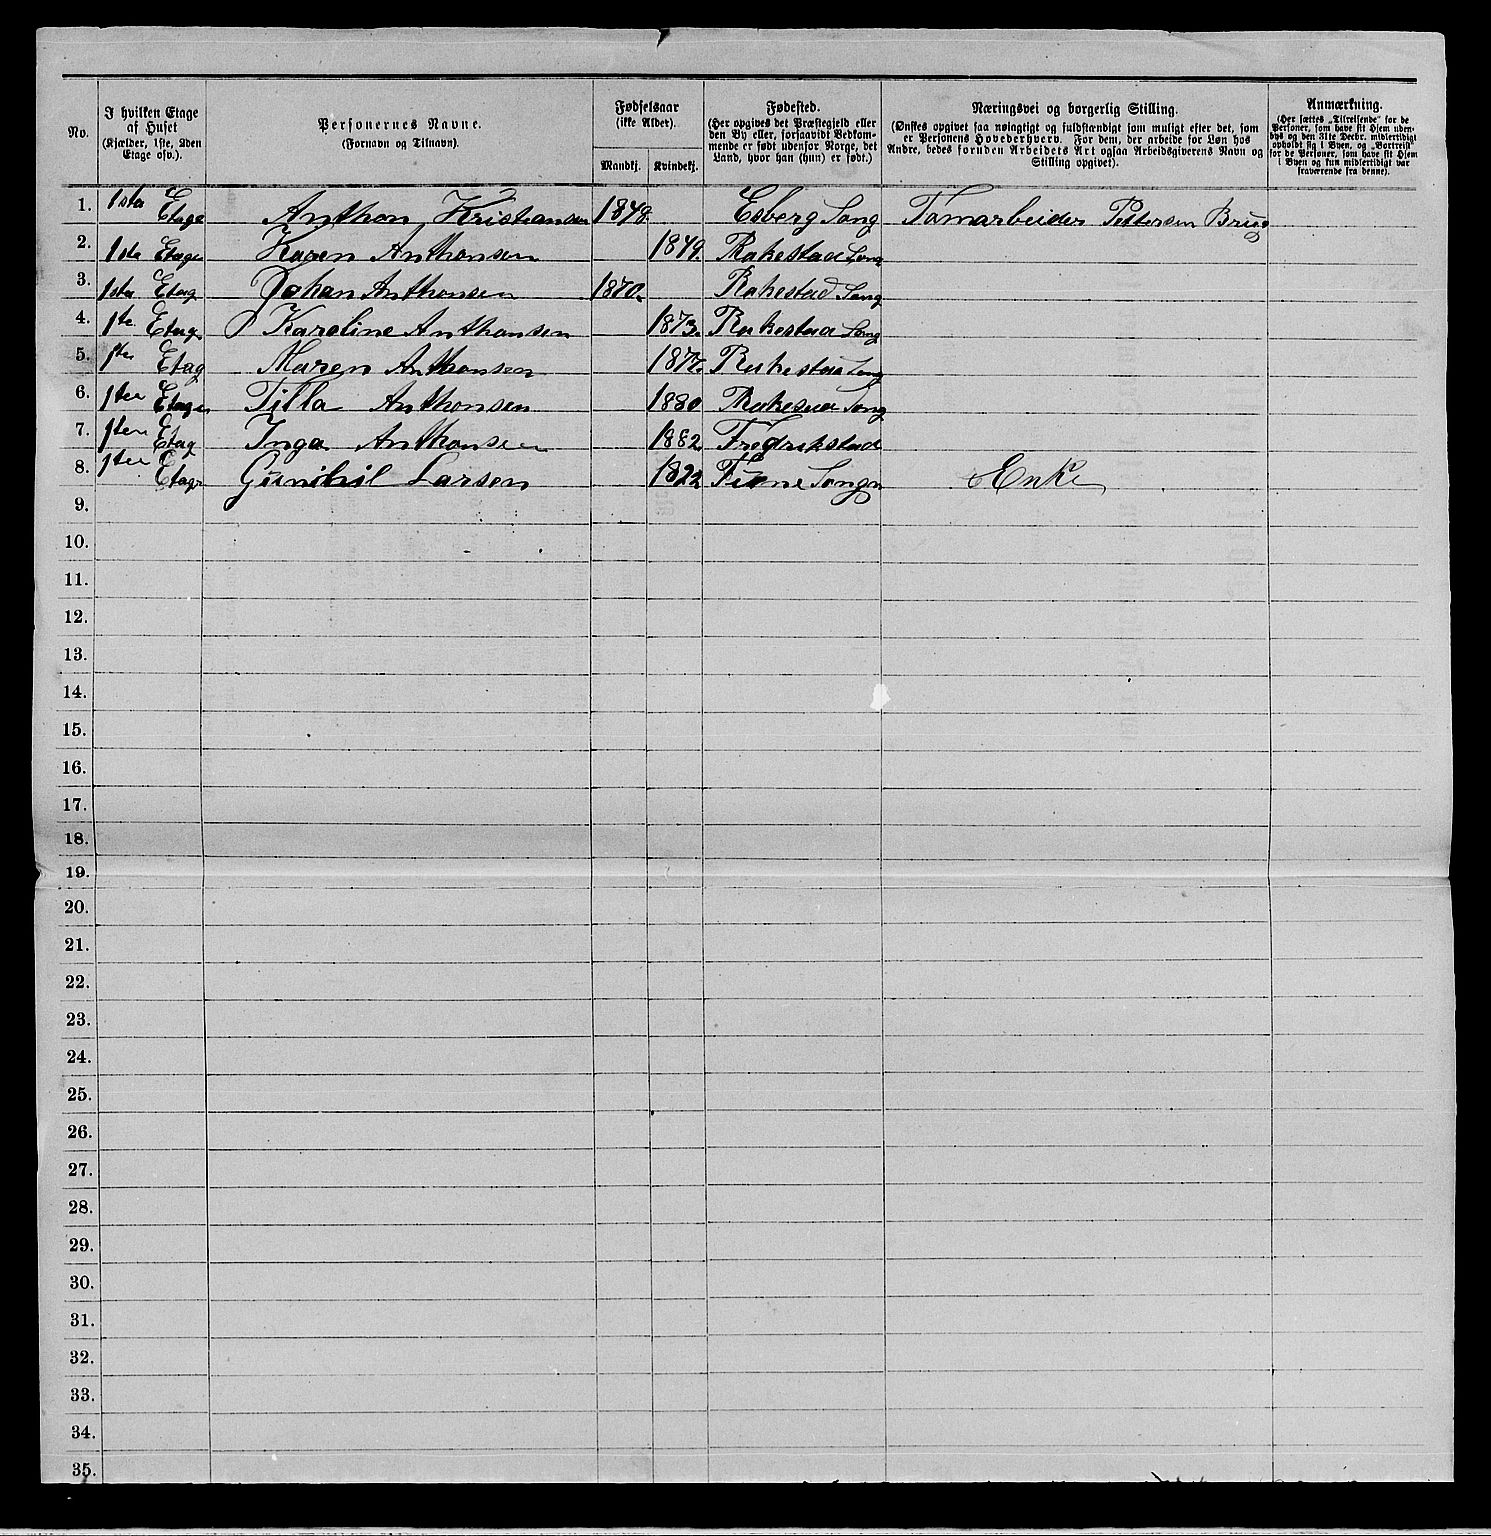 No.
I hvilken Etage af Huset (Kjælder, 1ste, 2den Etage osv.).
Personernes Navne. (Fornavn og Tilnavn).
Fødselsaar (ikke Alder).
Mandkj. Kvindekj.
Fødested. (Her opgives det Præstegjeld eller den By eller, forsaavidt Vedkommende er født udenfor Norge, det Land, hvor han (hun) er født.)
Næringsvei og borgerlig Stilling. (Ønskes opgivet saa nøiagtigt og fuldstændigt som muligt efter det, som er Personens Hovederhverv. For dem, der arbeide for Løn hos Andre, bedes foruden Arbeidets Art ogsaa Arbeidsgiverens Navn og Stilling opgivet).
Anmærkning. (Her sættes „Tilreisende" for de Personer, som have sit Hjem udenbys og den 31te Decbr. midlertidigt opholdt sig i Byen, og „Bortreist" for de Personer, som have sit Hjem i Byen og kun midlertidigt var fraværende fra denne).
1. 1ste Etage Anthon Kristiansen 1848. Esberg Song Tomarbeider Pettersen Brug
2. 1ste Etage Karen Anthonsen 1849. Rakestad Song
3. 1ste Etag Johan Anthonsen 1870. Rakestad Song
4. 1te Etage Karoline Anthonsen 1873. Rakestaa Song
5. 1te Etag Maren Anthonsen 1877. Rakestaa Song
6. 1ten Etagen Tilla Anthonsen 1880 Song
7. 1ten Etag Inga Anthonsen 1882 Fredrikstad
8. 1ten Etage Gunihil Larsen 1822 Songn Enke
9.
10.
11.
12.
13.
14.
15.
16.
17.
18.
19.
20.
21.
22.
23.
24.
25.
26.
27.
28.
29.
30.
31.
32.
33.
34.
35.